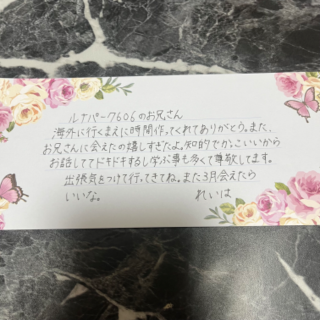 ルナパーク606のお兄さん
海外に行くまえに時間作ってくれてありがとう。また、
お兄さんに会えたの嬉しすぎたよ。知的でかっこいいから
お話しててドキドキするし学ぶ事も多くて尊敬してます。
出張気をつけて行ってきてね。また3月会えたら
いいな。 れいは